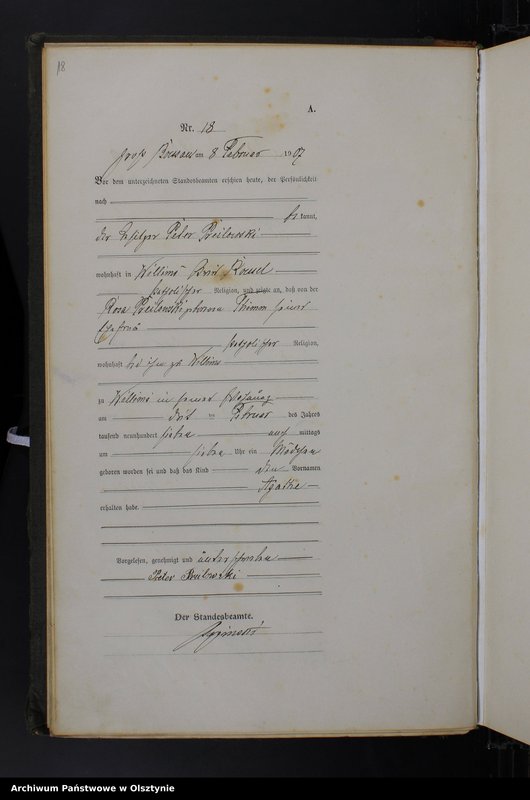 18
A.
Nr. 18
Groß Bössau am 8 Februar 1907
Vor dem unterzeichneten Standesbeamten erschien heute, der Persönlichkeit
nach
bekannt,
der Besitzer Peter
wohnhaft in Willims Kreis Rössel
katholischer Religion, und zeigte an, daß von der
Rosa geborene Thimm seiner
Ehefrau
katholischer Religion,
wohnhaft bei ihm zu Willims
zu Willims in seiner Behausung
am drit ten Februar des Jahres
tausend neunhundert sieben nach mittags
um sieben Uhr ein Mädchen
geboren worden sei und daß das Kind den Vornamen
Agathe
erhalten habe.
Vorgelesen, genehmigt und unterschrieben
Peter
Der Standesbeamte.
Archiwum Państwowe w Olsztynie